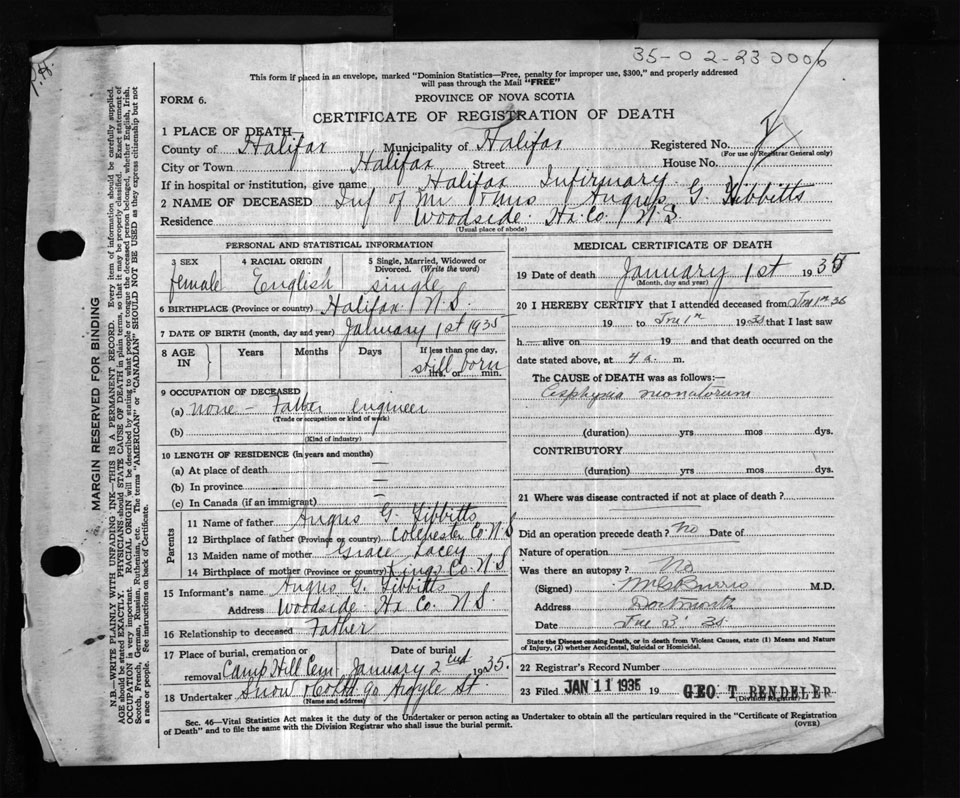 35-02-230006
P.H.
This form if placed in an envelope, marked "Dominion Statistics—Free, penalty for improper use, $300," and properly addressed
will pass through the Mail "FREE"
FORM 6.
PROVINCE OF NOVA SCOTIA
CERTIFICATE OF REGISTRATION OF DEATH
1 PLACE OF DEATH
County of Halifax Municipality of Halifax Registered No.
(For use of Registrar General only)
City or Town Halifax Street House No.
If in hospital or institution, give name Halifax Infirmary
2 NAME OF DECEASED Inf of Mr Angus G. Gibbitts
Residence Woodside Hx. Co. N S
(Usual place of abode)
PERSONAL AND STATISTICAL INFORMATION
3 SEX 4 RACIAL ORIGIN 5 Single, Married, Widowed or
Divorced. (Write the word)
female English single
6 BIRTHPLACE (Province or country) Halifax N.S.
7 DATE OF BIRTH (month, day and year) January 1st 1935
8 AGE IN Years Months Days If less than one day,
still born
hrs. or min.
9 OCCUPATION OF DECEASED
(a) none — Father engineer
(Trade or occupation or kind of work)
(b)
(Kind of industry)
10 LENGTH OF RESIDENCE (in years and months)
(a) At place of death —
(b) In province —
(c) In Canada (if an immigrant) —
Parents
11 Name of father Angus G. Gibbitts
12 Birthplace of father (Province or country) Colchester Co N.S
13 Maiden name of mother Grace Lacey
14 Birthplace of mother (Province or country) Kings Co. N S
15 Informant's name Angus G. Gibbitts
Address Woodside Hx Co. N S.
16 Relationship to deceased Father
17 Place of burial, cremation or Date of burial
removal Camp Hill Cem. January 2nd 1935.
18 Undertaker Snow & Co Ltd 90 Argyle St
(Name and address)
MEDICAL CERTIFICATE OF DEATH
19 Date of death January 1st 1935
(Month, day and year)
20 I HEREBY CERTIFY that I attended deceased from
19 to 19 35 that I last saw
h alive on 19 and that death occurred on the
date stated above, at 4 a. m.
The CAUSE OF DEATH was as follows:—
Asphyxia neonatorum
(duration) yrs mos dys.
CONTRIBUTORY
(duration) yrs mos dys.
21 Where was disease contracted if not at place of death?
Did an operation precede death? No Date of
Nature of operation
Was there an autopsy? No
(Signed) M.D.
Address Dartmouth
Date 3 35
State the Disease causing Death, or in death from Violent Causes, state (1) Means and Nature
of Injury, (2) whether Accidental, Suicidal or Homicidal.
22 Registrar's Record Number
23 Filed JAN 11 1935 19 GEO T. RENDELER
(Division Registrar)
Sec. 46—Vital Statistics Act makes it the duty of the Undertaker or person acting as Undertaker to obtain all the particulars required in the "Certificate of Registration
of Death" and to file the same with the Division Registrar who shall issue the burial permit.
(OVER)
MARGIN RESERVED FOR BINDING
N.B.—WRITE PLAINLY WITH UNFADING INK—THIS IS A PERMANENT RECORD. Every item of information should be carefully supplied.
AGE should be stated EXACTLY. PHYSICIANS should STATE CAUSE OF DEATH in plain terms, so that it may be properly classified. Exact statement of
OCCUPATION is very important. RACIAL ORIGIN will be described by stating to what people or tongue the deceased person belonged, whether English, Irish,
Scotch, French, German, Russian, Ruthenian, etc. The terms "AMERICAN" or "CANADIAN" SHOULD NOT BE USED as they express citizenship but not
a race or people. See instructions on back of Certificate.